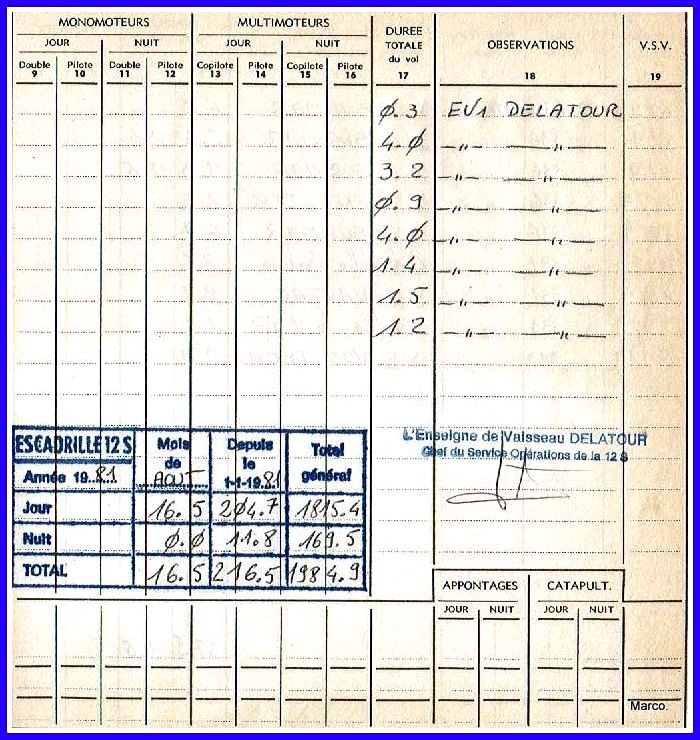 MONOMOTEURS MULTIMOTEURS DUREE TOTALE du vol OBSERVATIONS V.S.V.
JOUR NUIT JOUR NUIT
Double 9 Pilote 10 Double 11 Pilote 12 Copilote 13 Pilote 14 Copilote 15 Pilote 16 17 18 19
Ø.3 EV1 DELATOUR
4.Ø —〃— —〃—
3.2 —〃— —〃—
Ø.9 —〃— —〃—
4.Ø —〃— —〃—
1.4 —〃— —〃—
1.5 —〃— —〃—
1.2 —〃— —〃—
L'Enseigne de Vaisseau DELATOUR
Chef du Service Opérations de la 12 S
ESCADRILLE 12 S Mois de AOUT Depuis le 1-1-1981 Total général
Année 1981
Jour 16.5 2Ø4.7 1815.4
Nuit Ø.Ø 11.8 169.5
TOTAL 16.5 216.5 1984.9
APPONTAGES CATAPULT.
JOUR NUIT JOUR NUIT
Marco.